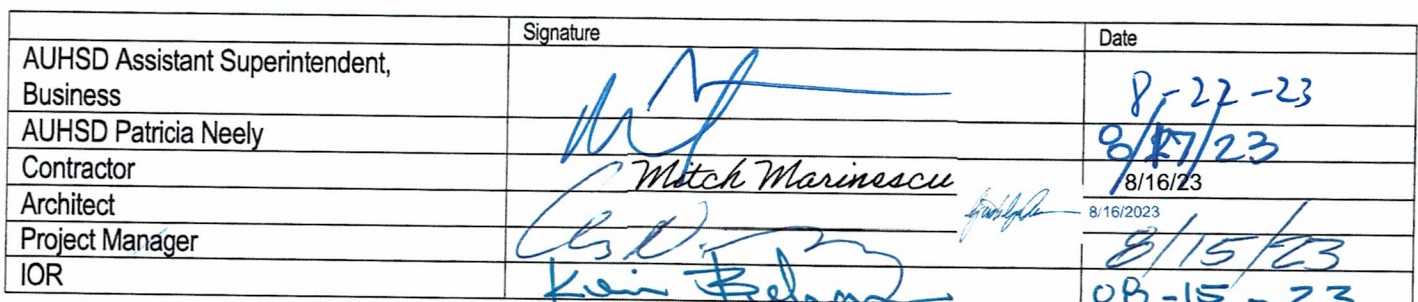 Signature Date
AUHSD Assistant Superintendent,
Business 8-22-23
AUHSD Patricia Neely 8/17/23
Contractor Mitch Marinescu 8/16/23
Architect 8/16/2023
Project Manager 8/15/23
IOR 08-15-23